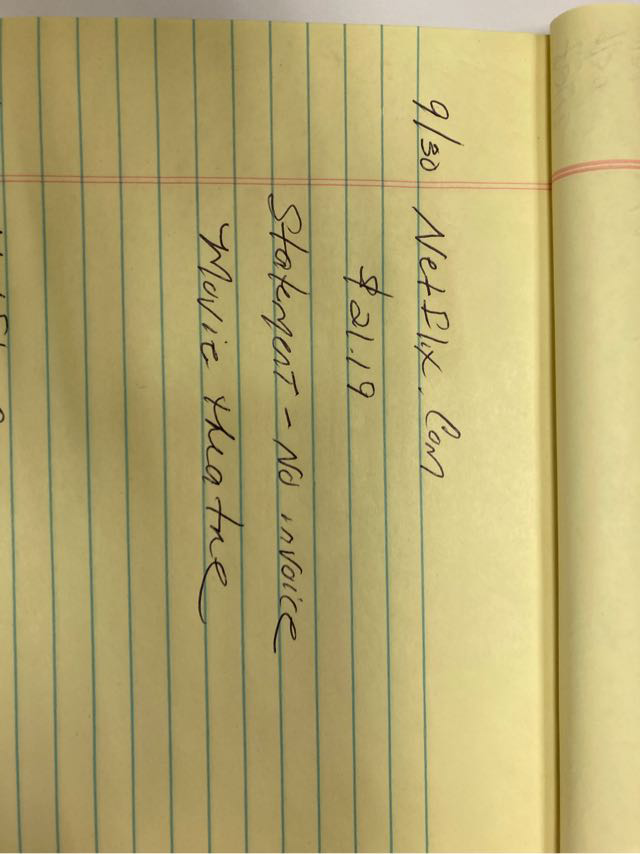 9/30 Netflix.Com
$21.19
Statement - No invoice
Movie theatre